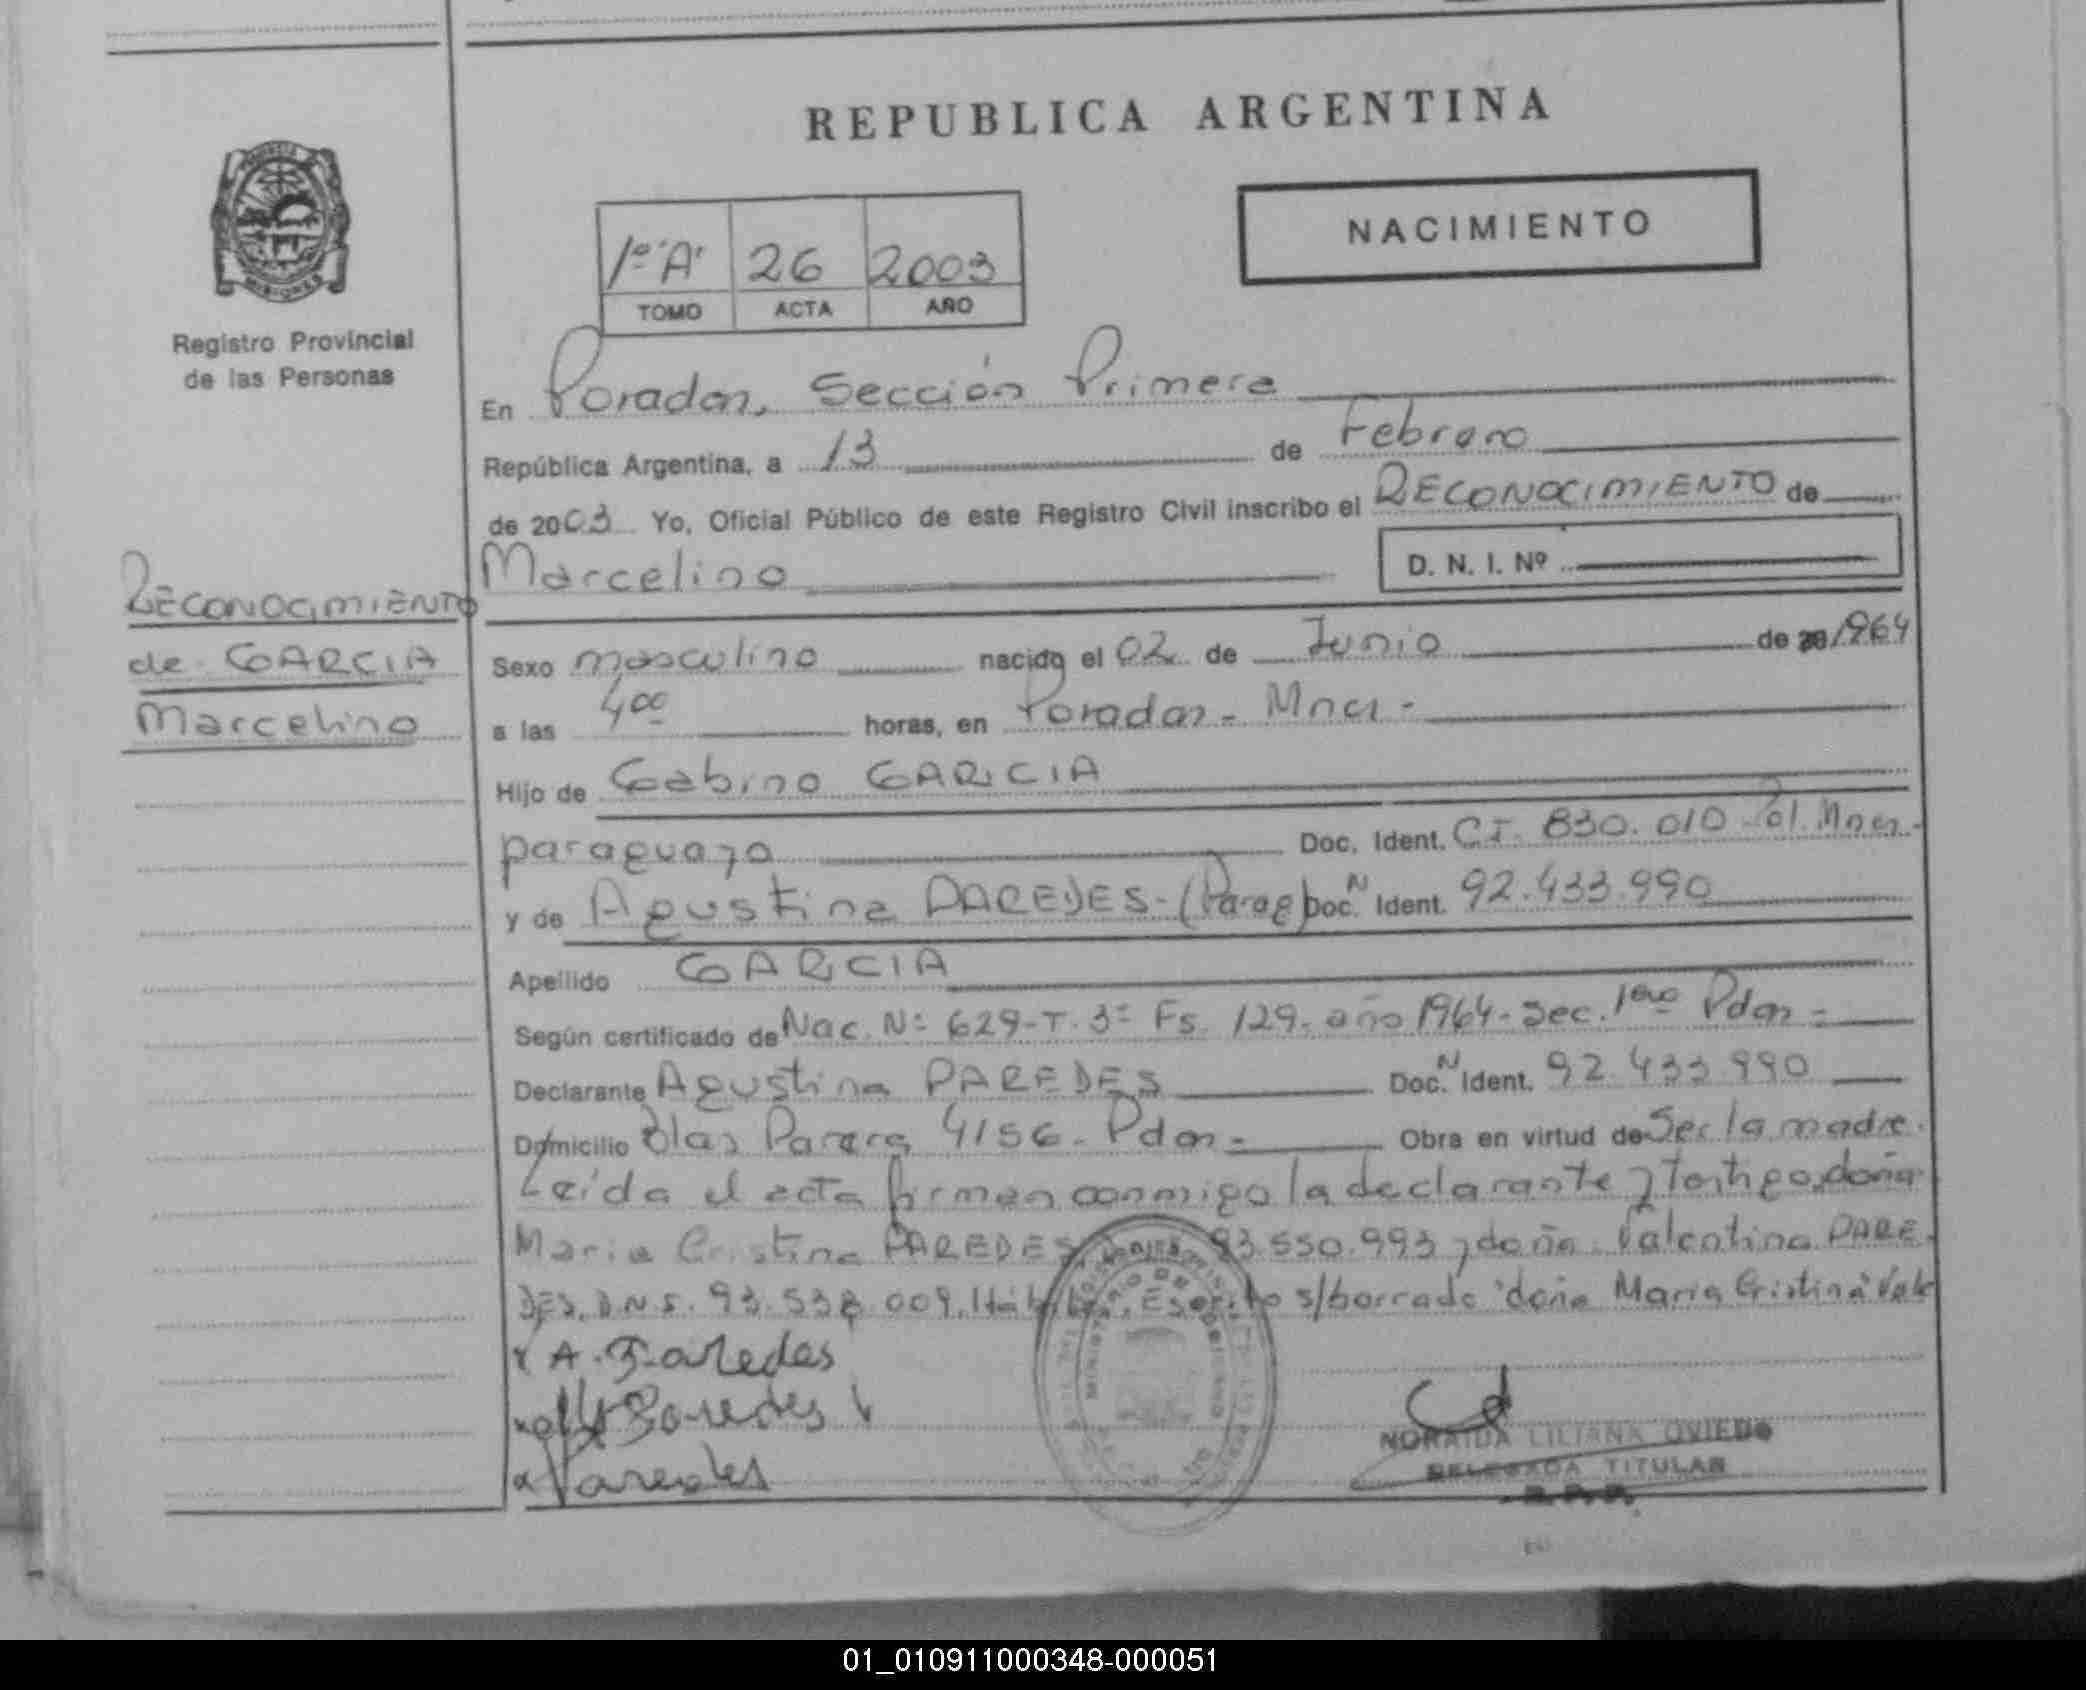 REPUBLICA ARGENTINA
NACIMIENTO
1º "A" 26 2003
TOMO ACTA AÑO
Registro Provincial
de las Personas
En Posadas, Sección Primera
República Argentina, a 13 de Febrero
de 2003 Yo, Oficial Público de este Registro Civil inscribo el RECONOCIMIENTO de
Marcelino D. N. I. Nº
RECONOCIMIENTO
de GARCIA
Marcelino
Sexo masculino nacido el 02 de Junio de 1964
a las 4 00 horas, en Posadas - Mnes -
Hijo de Gabino GARCIA
paraguayo Doc. Ident. C.I. 830.010 Pol. Mnes -
y de Agustina PAREDES - (Parag) Doc. N Ident. 92.433.990
Apellido GARCIA
Según certificado de Nac. Nº 629 - T. 3º Fs. 129 - año 1964 - Sec. 1era Pdas -
Declarante Agustina PAREDES Doc. N Ident. 92.433.990
Domicilio Blas Parera 4156 - Pdas - Obra en virtud de Ser la madre.
Leída el acta firman conmigo la declarante y testigos, doña
Maria Cristina PAREDES 93.550.993 y doña Valentina PARE
DES, D.N.I. 93.538.009. Hábiles. Escrito s/borrado "doña Maria Cristina" Vale
A. Paredes
Paredes
Paredes
NORAIDA LILIANA OVIEDO
DELEGADA TITULAR
R. P. P.
01_010911000348-000051